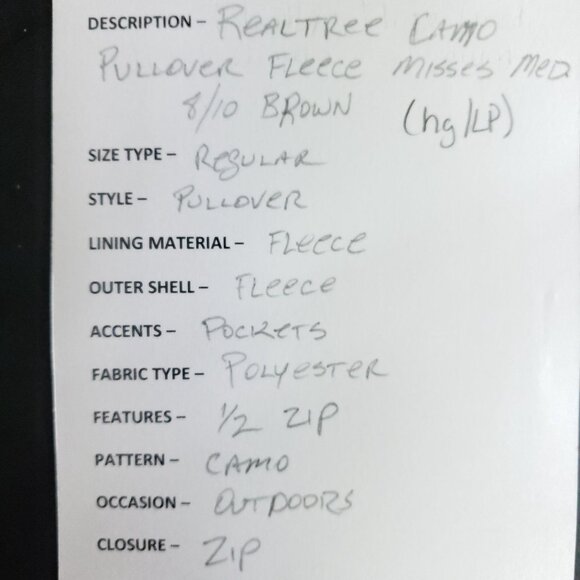 DESCRIPTION – REALTREE CAMO
PULLOVER FLEECE MISSES MED
8/10 BROWN (hg/LP)
SIZE TYPE – REGULAR
STYLE – PULLOVER
LINING MATERIAL – FLEECE
OUTER SHELL – FLEECE
ACCENTS – POCKETS
FABRIC TYPE – POLYESTER
FEATURES – 1/2 ZIP
PATTERN – CAMO
OCCASION – OUTDOORS
CLOSURE – ZIP